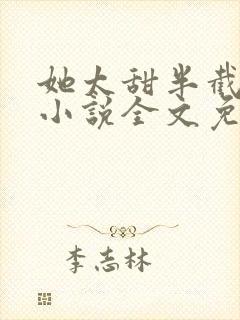 她太甜半截
小说全文免
李志林